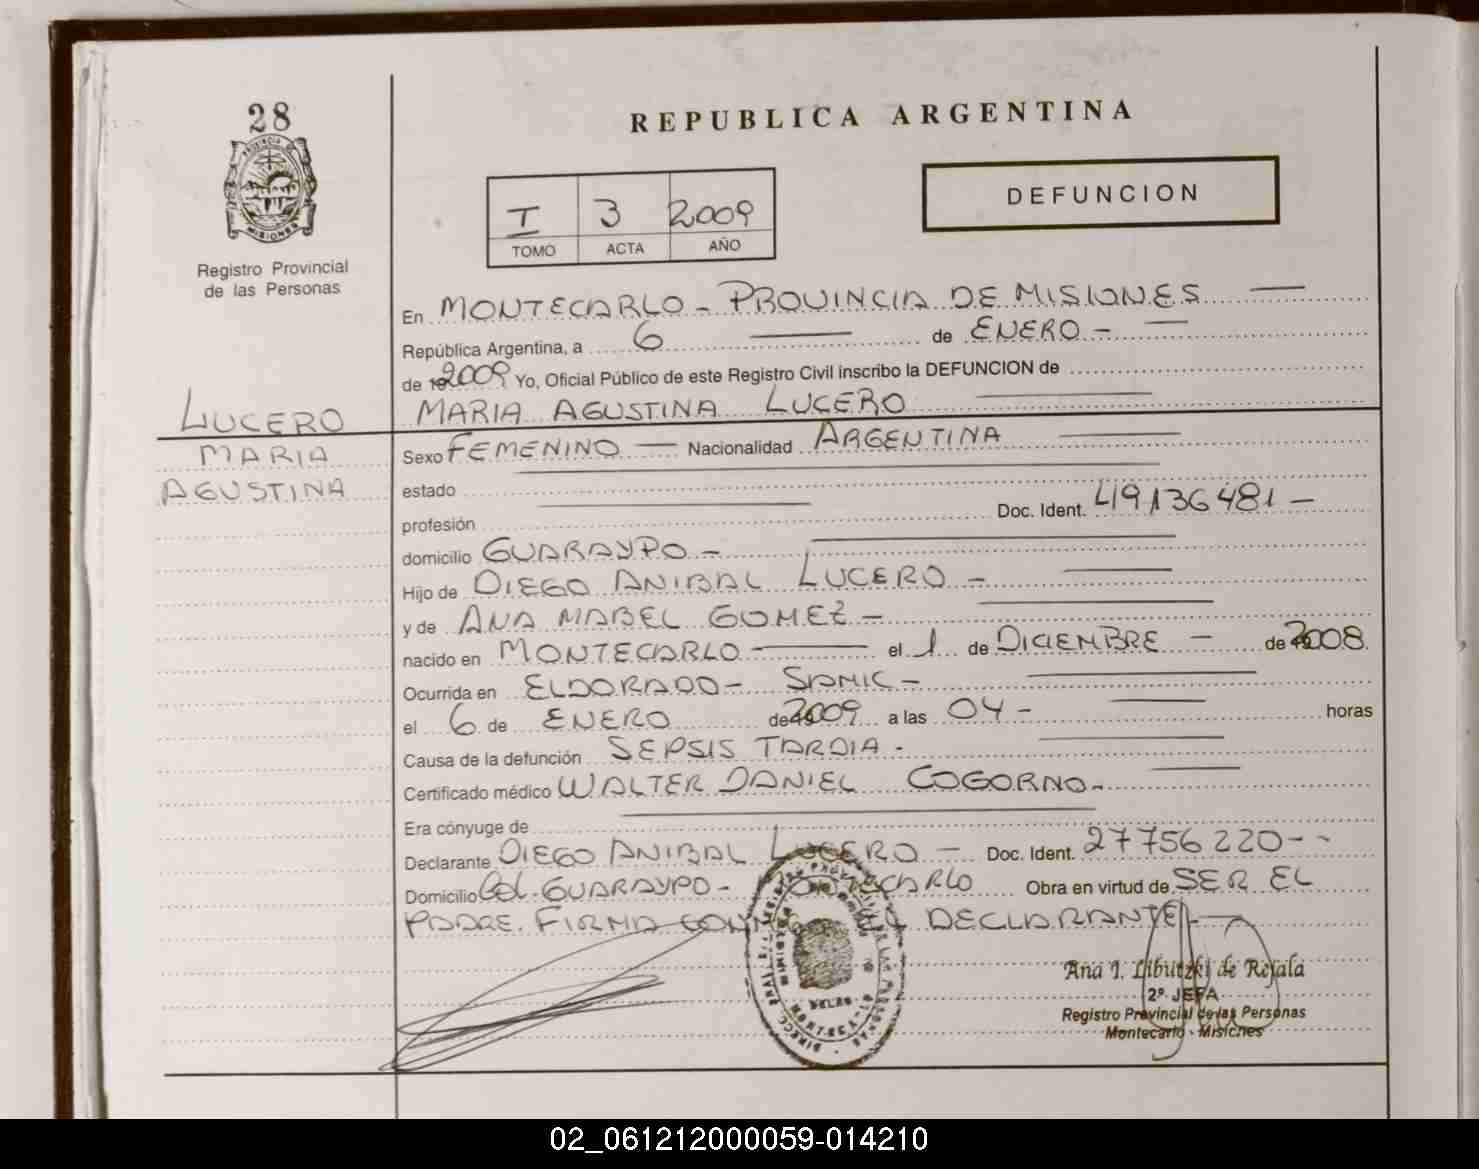 28
REPUBLICA ARGENTINA
DEFUNCION
I 3 2009
TOMO ACTA AÑO
PROVINCIA DE
MISIONES
Registro Provincial
de las Personas
En MONTECARLO - PROVINCIA DE MISIONES
República Argentina, a 6 de ENERO -
de 2009 Yo, Oficial Público de este Registro Civil inscribo la DEFUNCION de
MARIA AGUSTINA LUCERO
LUCERO
MARIA
AGUSTINA
Sexo FEMENINO — Nacionalidad ARGENTINA
estado
profesión Doc. Ident. 49136481 -
domicilio GUARAYPO -
Hijo de DIEGO ANIBAL LUCERO -
y de ANA MABEL GOMEZ -
nacido en MONTECARLO — el 1 de DICIEMBRE - de 2008
Ocurrida en ELDORADO - SAMIC -
el 6 de ENERO de 2009 a las 04 - horas
Causa de la defunción SEPSIS TARDIA -
Certificado médico WALTER DANIEL COGORNO -
Era cónyuge de
Declarante DIEGO ANIBAL LUCERO - Doc. Ident. 27756220 - -
Domicilio Col. GUARAYPO - MONTECARLO Obra en virtud de SER EL
PADRE. FIRMA DECLARANTE
Ana I. Libutzki de Rejala
2º JEFA
Registro Provincial de las Personas
Montecarlo - Misiones
02_061212000059-014210